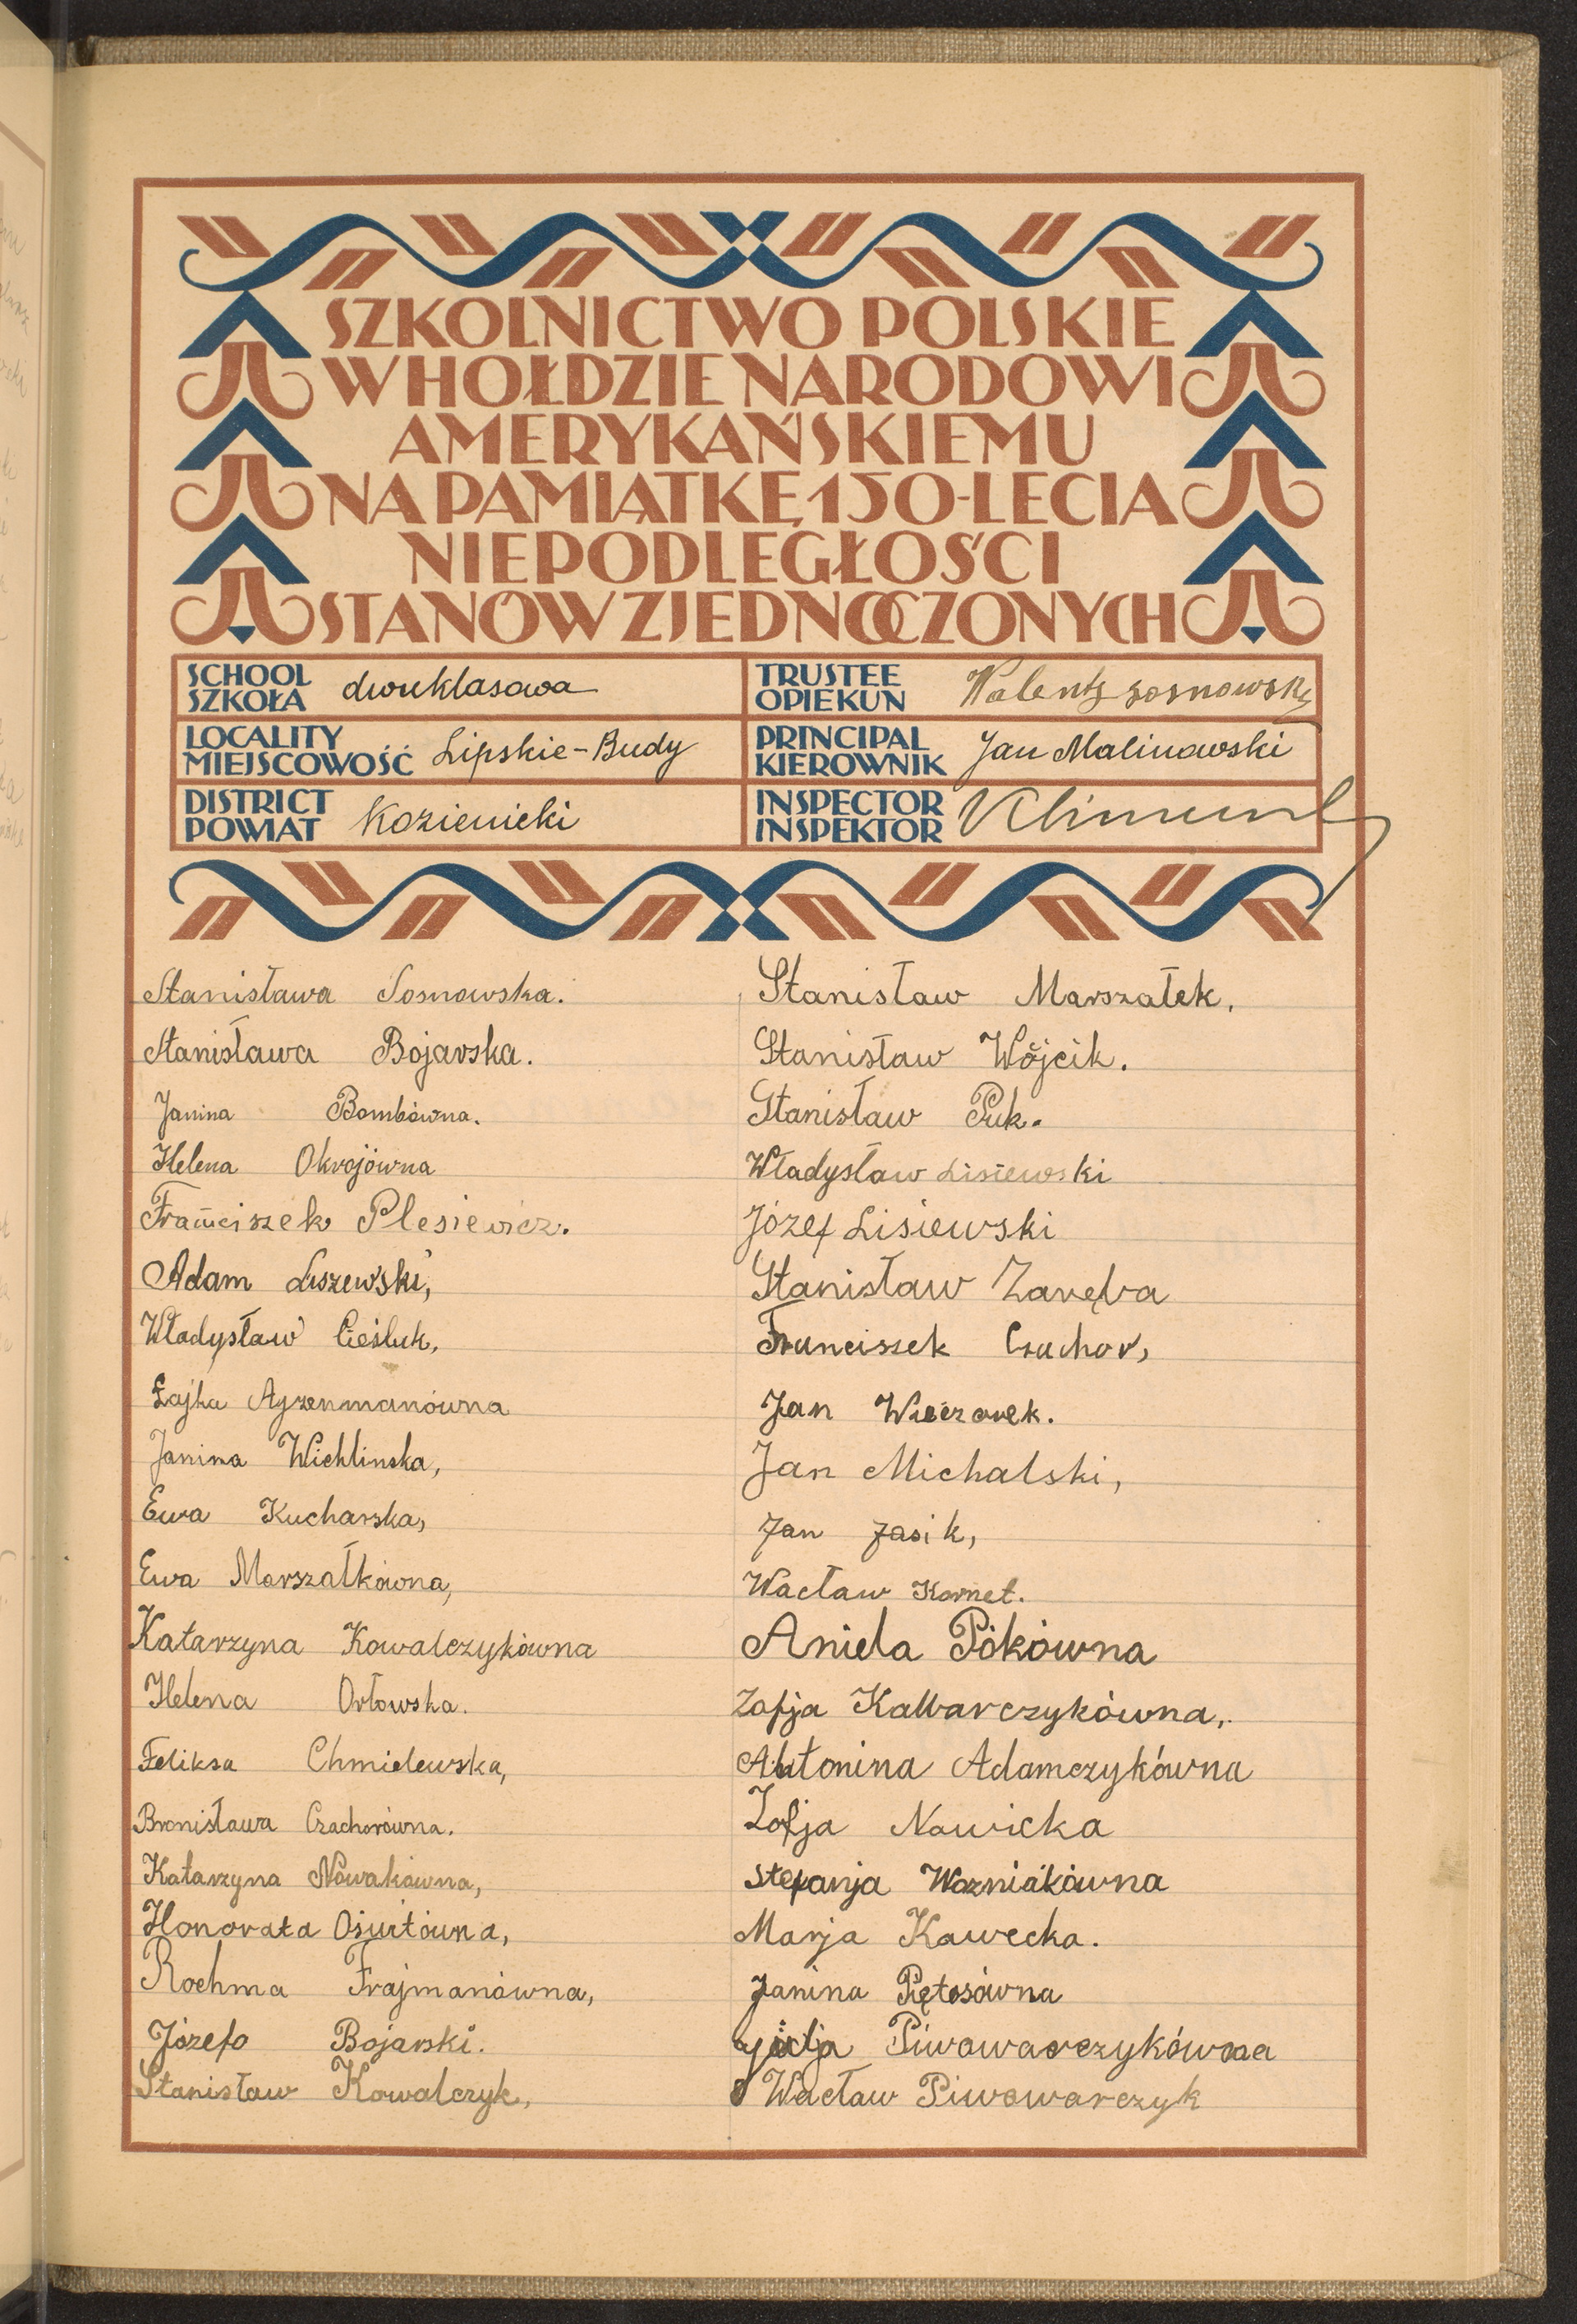 SZKOLNICTWO POLSKIE
W HOŁDZIE NARODOWI
AMERYKAŃSKIEMU
NA PAMIĄTKĘ 150-LECIA
NIEPODLEGŁOŚCI
STANÓW ZJEDNOCZONYCH
SCHOOL SZKOŁA dwuklasowa
TRUSTEE OPIEKUN Walenty Sosnowski
LOCALITY MIEJSCOWOŚĆ Lipskie-Budy
PRINCIPAL KIEROWNIK Jan Malinowski
DISTRICT POWIAT Kozienicki
INSPECTOR INSPEKTOR
Stanisława Sosnowska.
Stanisława Bojarska.
Janina Bombówna.
Helena Okrojówna
Franciszek Plesiewicz.
Adam Luszewski,
Władysław Cieśluk,
Łajka Ajzenmanówna
Janina Wichlinska,
Ewa Kucharska,
Ewa Marszałkówna,
Katarzyna Kowalczykówna
Helena Orłowska.
Feliksa Chmielewska,
Bronisława Czachorówna.
Katarzyna Nowakówna,
Honorata
Rochma Frajmanówna,
Józefo Bojarski.
Stanisław Kowalczyk,
Stanisław Marszałek.
Stanisław Wójcik.
Stanisław Puk.
Władysław Lisiewski
Józef Lisiewski
Stanisław Zaręba
Franciszek Czachor,
Jan Wieczorek.
Jan Michalski,
Jan Jasik,
Wacław Kornet.
Aniela Pókówna
Zofja
Antonina Adamczykówna
Zofja Nowicka
Stefanja Wozniakówna
Marja Kawecka.
Janina Piętosówna
Piwowarczykówna
Wacław Piwowarczyk